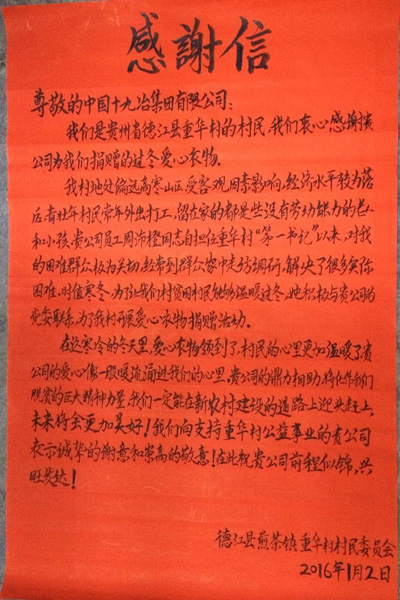 感謝信
尊敬的中国十九冶集团有限公司：
我们是贵州省德江县重华村的村民，我们衷心感謝贵
公司为我们捐赠的过冬爱心衣物。
我村地处偏远高寒山区，受客观因素影响，经济水平较为落
后，青壮年村民常年外出打工，留在家的都是些没有劳动能力的老人
和小孩，贵公司员工周沛橙同志自担任重华村“第一书记”以来，对我
的困难群众极为关切，经常到群众家中走访调研，解决了很多实际
困难。时值寒冬，为了让我们村贫困村民能够温暖过冬，她积极与贵公司的
党委联系，为了我村开展爱心衣物捐赠活动。
在这寒冷的冬天里，爱心衣物领到了，村民的心里更加温暖了，贵
公司的爱心像一股暖流涌进我们的心里。贵公司的鼎力相助，将化作我们
脱贫的巨大精神力量，我们一定能在新农村建设的道路上迎头赶上，
未来将会更加美好！我们向支持重华村公益事业的贵公司
表示诚挚的谢意和崇高的敬意！在此祝贵公司前程似锦，兴
旺发达！
德江县煎茶镇重华村村民委员会
2016年1月2日